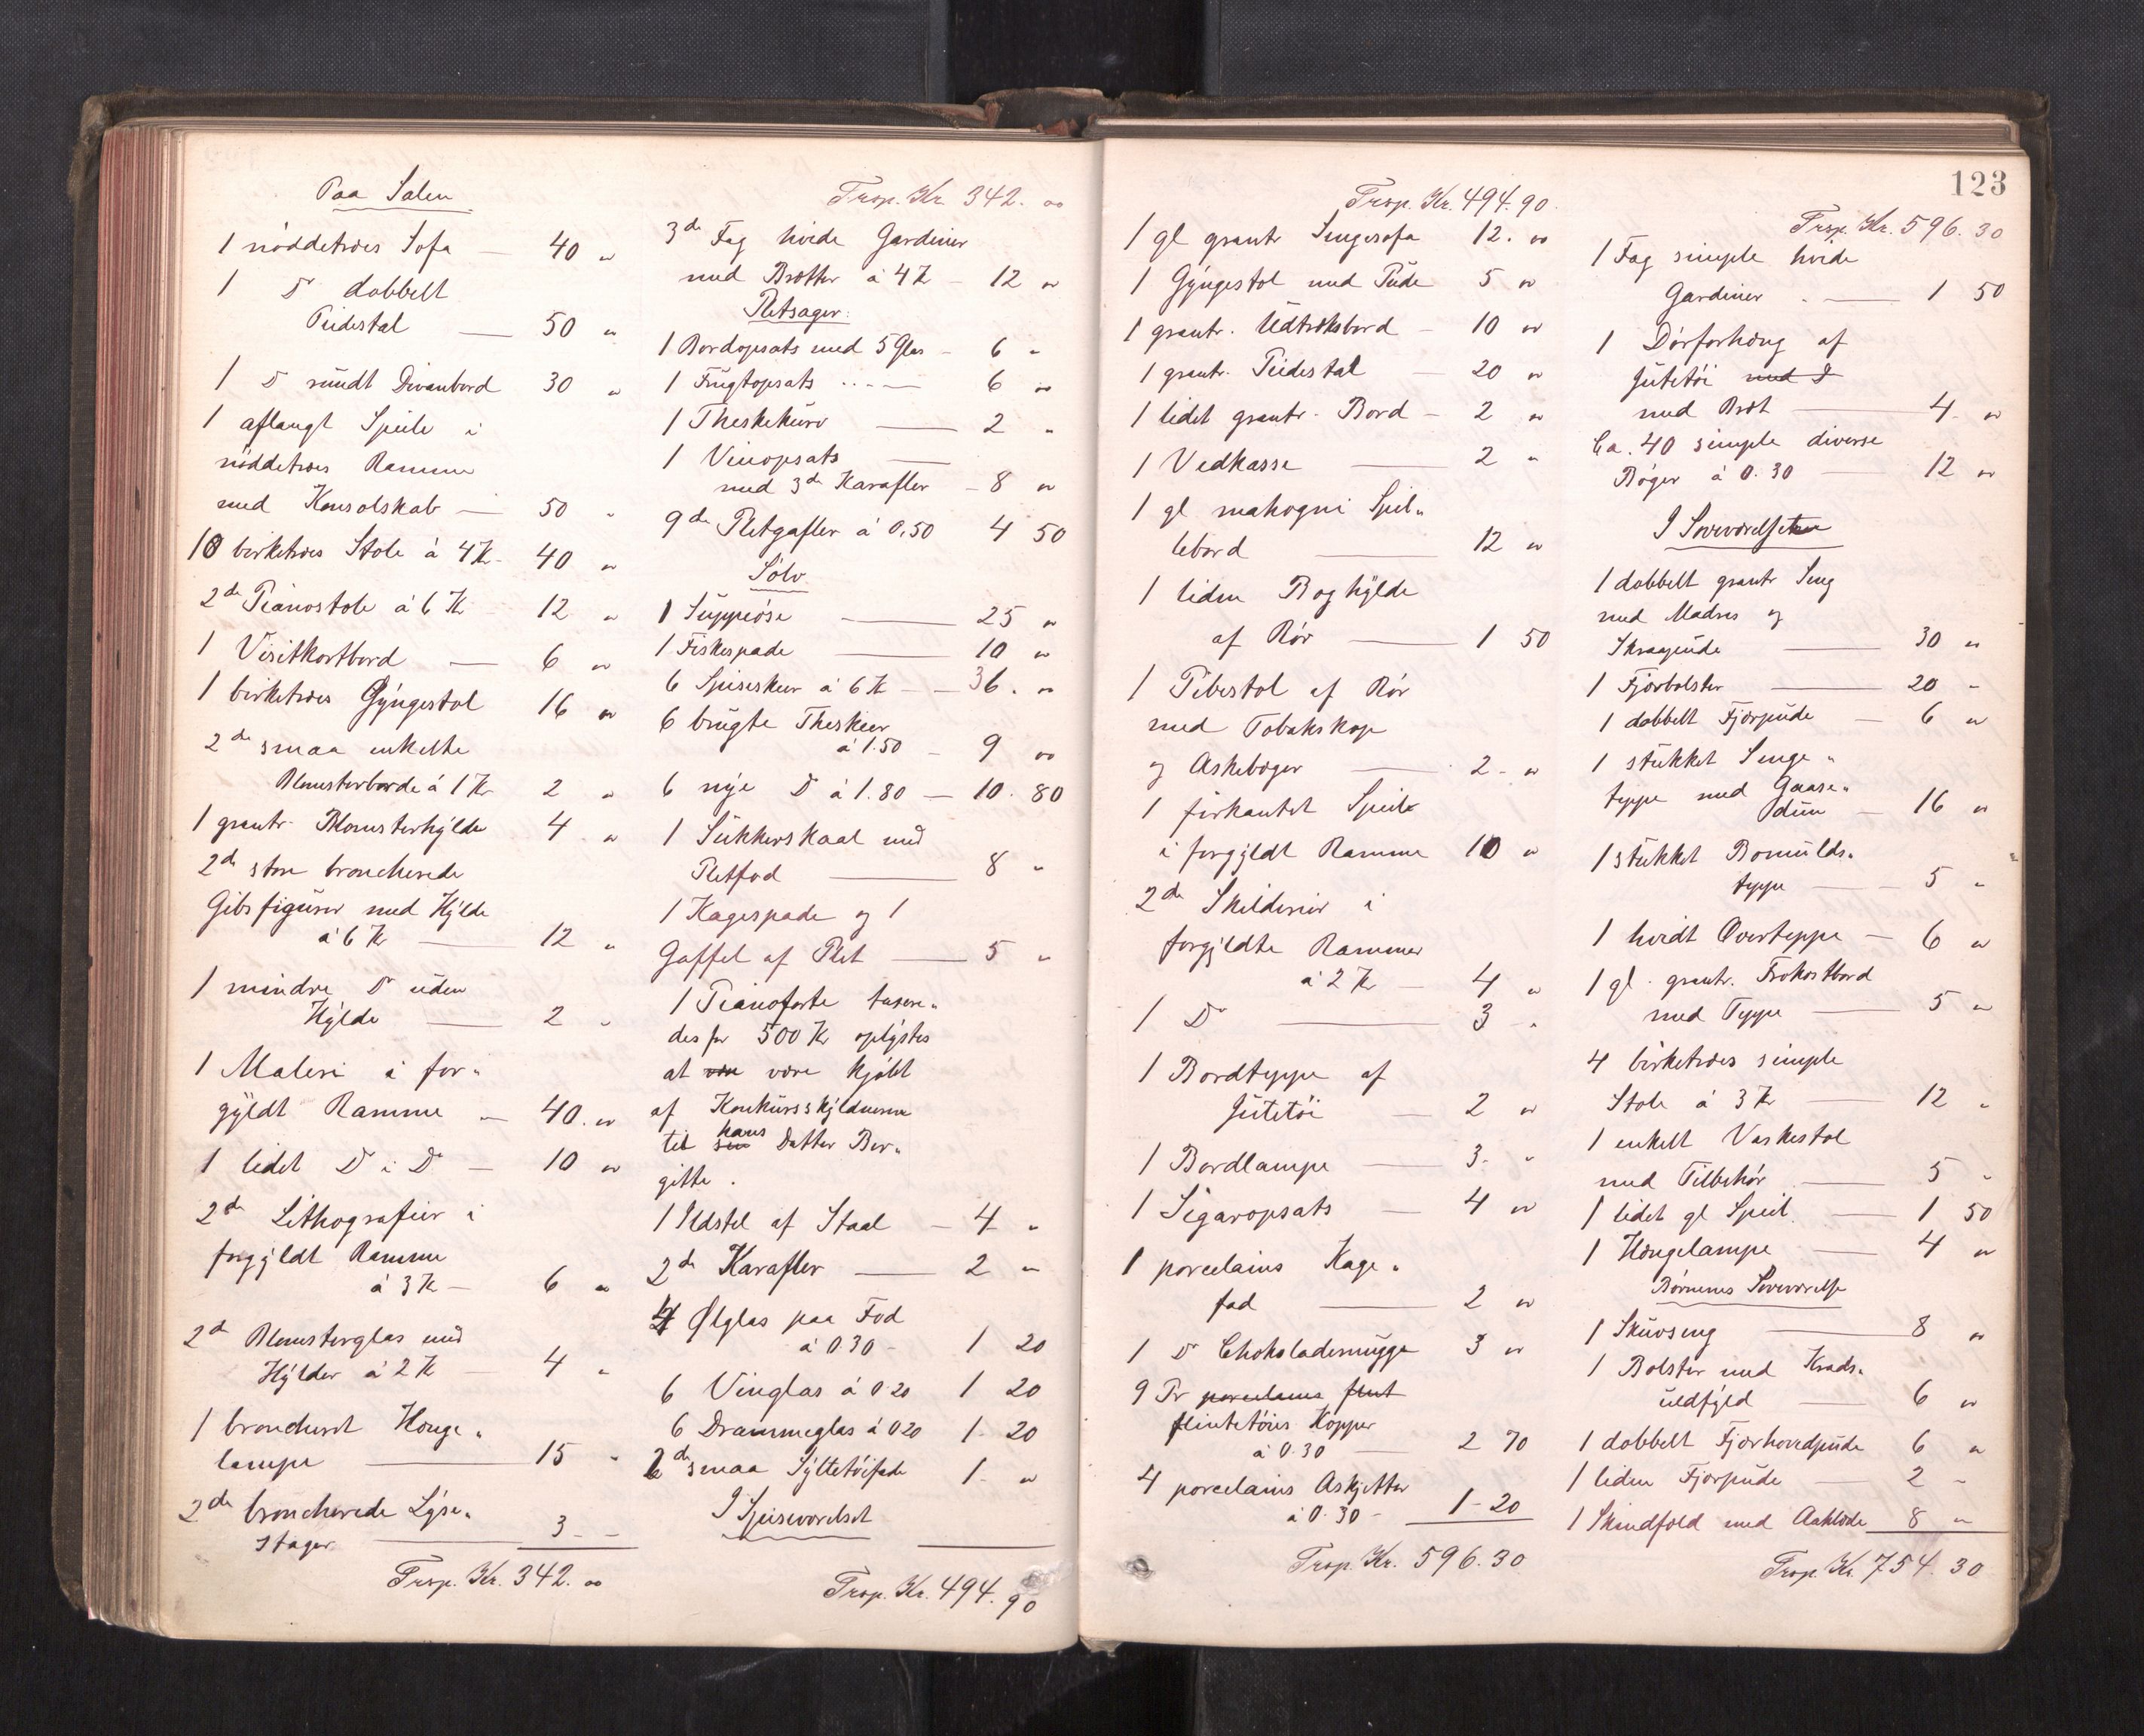 Paa Salen
1 nöddetræes Sofa — 40 "
1 Do dobbelt
Pidestal — 50 "
1 Do rundt Divanbord 30 "
1 aflangt Speile i
nöddetræes Ramme
med Konsolskab — 50 "
10 birketræes Stole á 4 Kr - 40 "
2de Pianostole á 6 Kr 12 "
1 Visitkortbord — 6 "
1 birketræes Gyngestol 16 "
2de smaa enkelte
Blomsterborde á 1 Kr 2 "
1 grantr. Blomsterhylde 4 "
2de store broncherede
Gibsfigurer med Hylde
á 6 Kr — 12 "
1 mindre Do uden
Hylde — 2 "
1 Maleri i for„
gyldt Ramme — 40. "
1 lidet Do i Do — 10 "
2de Lithografier i
forgyldt Ramme
á 3 Kr — 6 "
2de Blomsterglas med
Hylder á 2 Kr — 4 "
1 broncheret Hænge„
lampe — 15 "
2de broncherede Lyse„
stager — 3 - -
Trsp. Kr. 342. "
Trsp. Kr. 342. "
3de Fag hvide Gardiner
med Brætter á 4 Kr — 12 "
Pletsager:
1 Bordopsats med 5 Glas - 6 "
1 Frugtopsats ... — 6 "
1 Theskekurv — 2 "
1 Vinopsats —
med 3de Karafler — 8 "
9de Pletgafler á 0.50 4 50
Sölv
1 Suppeöse — 25 "
1 Fiskespade — 10 "
6 Spiseskeer á 6 Kr — 36. "
6 brugte Theskeer
á 1.50 — 9 "
6 nye Do á 1.80 — 10. 80
1 Sukkerskaal med
Pletfod — 8 "
1 Kagespade og 1
Gaffel af Plet — 5 "
1 Pianoforte taxere„
des for 500 Kr oplystes
at være være kjöbt
af Konkursskyldneren
til sin hans Datter Ber„
gitte.
1 Ildstel af Staal — 4 "
2de Karafler — 2 "
4 Ølglas paa Fod
á 0.30 - 1 20
6 Vinglas á 0.20 1 20
6 Drammeglas á 0.20 1 - 20
2de smaa Syltetöifade 1 - "
I Spiseværelset
Trsp. Kr. 494. 90
Trsp. Kr. 494. 90.
1 gl grantr Sengesofa 12. "
1 Gyngestol med Pude 5 "
1 grantr. Udtræksbord — 10 "
1 grantr. Pidestal — 20 "
1 lidet grantr. Bord — 2 "
1 Vedkasse — 2 "
1 gl mahogni Spil„
lebord — 12 "
1 liden Boghylde
af Rör — 1 50
1 Pibestol af Rör
med Tobakskop
og Askebæger — 2 - "
1 firkantet Speil
i forgyldt Ramme 10 "
2de Skilderier i
forgyldte Rammer
á 2 Kr — 4 "
1 Do — 3 "
1 Bordteppe af
Jutetöi — 2 "
1 Bordlampe — 3 - "
1 Sigaropsats — 4 "
1 porcelains Kage„
fad — 2 "
1 Do Chokolademugge 3 "
9 Pr porcelains flint
flintetöies Kopper
á 0.30 — 2 70
4 porcelains Askjetter
á 0.30 - 1 - 20
Trsp. Kr. 596. 30
123
Trsp. Kr. 596. 30
1 Fag simple hvide
Gardiner . — 1 50
1 Dörforhæng af
Jutetöi med B
med Bræt — 4 - "
Ca. 40 simple diverse
Böger á 0.30 — 12 "
I Soveværelset
1 dobbelt grantr Seng
med Madras og
Skraapude — 30 "
1 Fjærbolster — 20 -
1 dobbelt Fjærpude — 6 "
1 stukket Senge„
teppe med Gaase„
dun — 16 "
1 stukket Bomulds„
teppe — 5 "
1 hvidt Overteppe — 6 "
1 gl. grantr. Frokostbord
med Teppe — 5 "
4 birketræes simple
Stole á 3 Kr — 12 "
1 enkelt Vaskestol
med Tilbehör — 5 "
1 lidet gl Speil — 1 50
1 Hængelampe — 4 "
Börnenes Soveværelse
1 Skuvseng — 8 "
1 Bolster med Krads„
uldfyld — 6 "
1 dobbelt Fjærhovedpude 6 "
1 liden Fjærpude — 2 -
1 Skindfæld med Aaklæde 8 "
Trsp. Kr. 754. 30